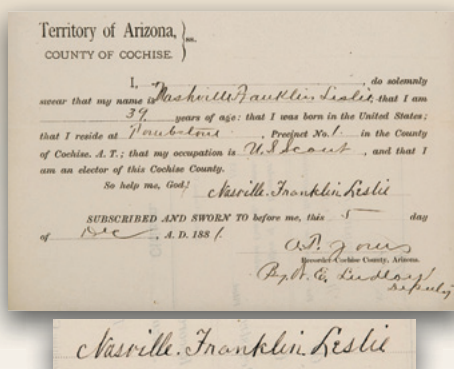 Territory of Arizona, } ss.
COUNTY OF COCHISE.
I, , do solemnly
swear that my name is Nashville Franklin Leslie, that I am
39 years of age: that I was born in the United States;
that I reside at Tombstone , Precinct No. 1 in the County
of Cochise. A. T.; that my occupation is U.S Scout , and that I
am an elector of this Cochise County.
So help me, God! Nasville. Franklin Leslie
SUBSCRIBED AND SWORN TO before me, this 5 day
of Dec , A. D. 1881.
Recorder Cochise County, Arizona.
By W. E. Ludlow
Deputy
Nasville. Franklin. Leslie